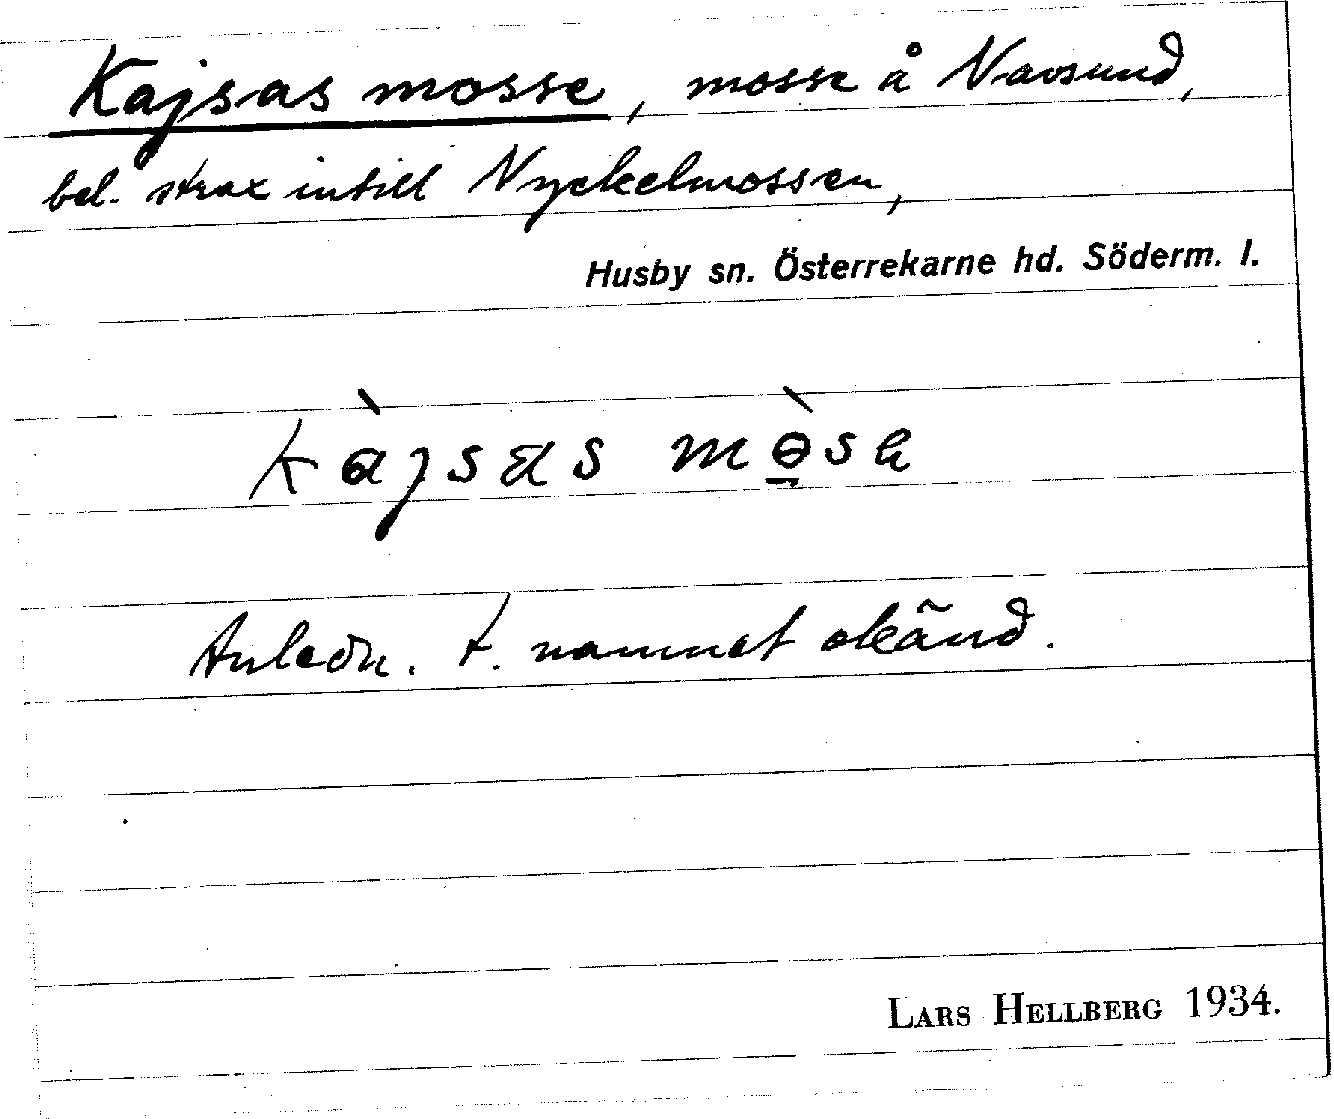 Kajsas mosse, mosse å Navsund,
bel. strax intill Nyckelmossen,
Husby sn. Österrekarne hd. Söderm. l.
kàjsas mɵ̀sa
Anledn. t. namnet okänd.
LARS HELLBERG 1934.